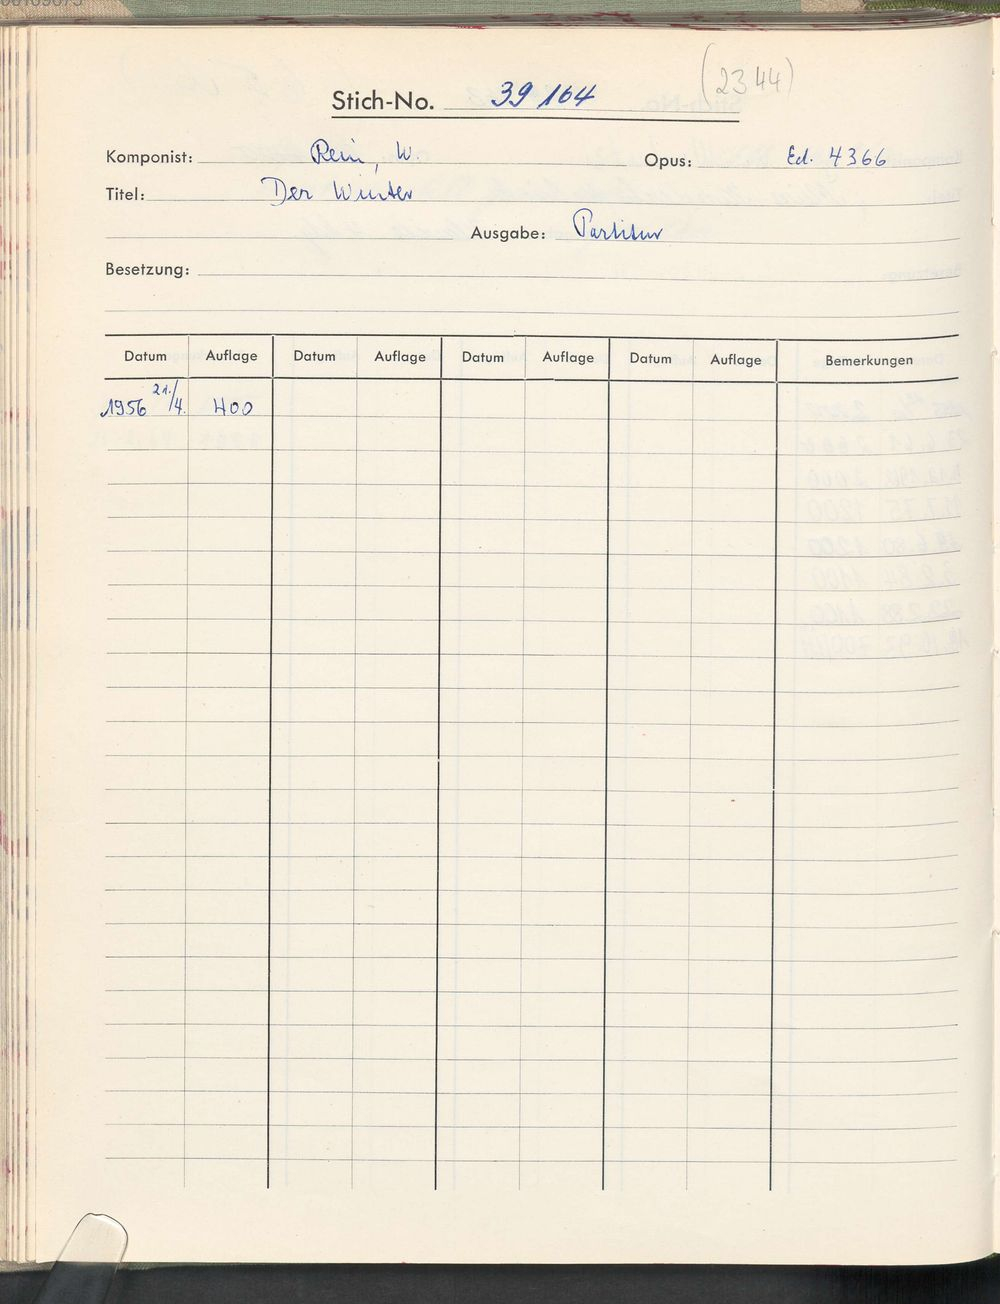 (2344)
Stich-No. 39 164
Komponist: Rein, W. Opus: Ed. 4366
Titel: Der Winter
Ausgabe: Partitur
Besetzung:
Datum Auflage Datum Auflage Datum Auflage Datum Auflage Bemerkungen
1956 21./4. 400